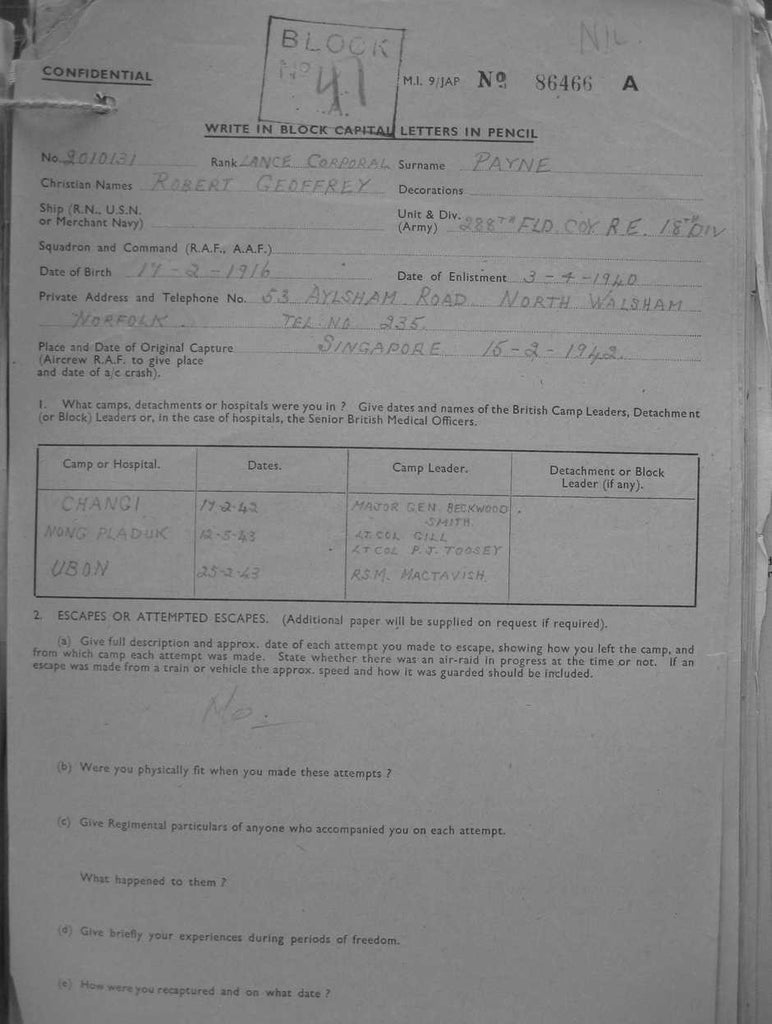 NIL
BLOCK
Nº 41
A.
CONFIDENTIAL
M.I. 9/JAP Nº 86466 A
WRITE IN BLOCK CAPITAL LETTERS IN PENCIL
No. 2010131 Rank LANCE CORPORAL Surname PAYNE
Christian Names ROBERT GEOFFREY Decorations
Ship (R.N., U.S.N.
or Merchant Navy)
Unit & Div.
(Army) 288TH FLD. COY. R.E. 18TH DIV
Squadron and Command (R.A.F., A.A.F.)
Date of Birth 17-2-1916 Date of Enlistment 3-4-1940
Private Address and Telephone No. 53 AYLSHAM ROAD NORTH WALSHAM
NORFOLK. TEL. NO. 235.
Place and Date of Original Capture SINGAPORE 15-2-1942.
(Aircrew R.A.F. to give place
and date of a/c crash).
1. What camps, detachments or hospitals were you in ? Give dates and names of the British Camp Leaders, Detachment
(or Block) Leaders or, in the case of hospitals, the Senior British Medical Officers.
Camp or Hospital. Dates. Camp Leader. Detachment or Block
Leader (if any).
CHANGI 17-2-42 MAJOR GEN. BECKWOOD
SMITH.
NONG PLADUK 12-5-43 LT. COL. GILL
LT COL P. J. TOOSEY
UBON 25-2-43 R.S.M. MACTAVISH.
2. ESCAPES OR ATTEMPTED ESCAPES. (Additional paper will be supplied on request if required).
(a) Give full description and approx. date of each attempt you made to escape, showing how you left the camp, and
from which camp each attempt was made. State whether there was an air-raid in progress at the time or not. If an
escape was made from a train or vehicle the approx. speed and how it was guarded should be included.
No.
(b) Were you physically fit when you made these attempts ?
(c) Give Regimental particulars of anyone who accompanied you on each attempt.
What happened to them ?
(d) Give briefly your experiences during periods of freedom.
(e) How were you recaptured and on what date ?